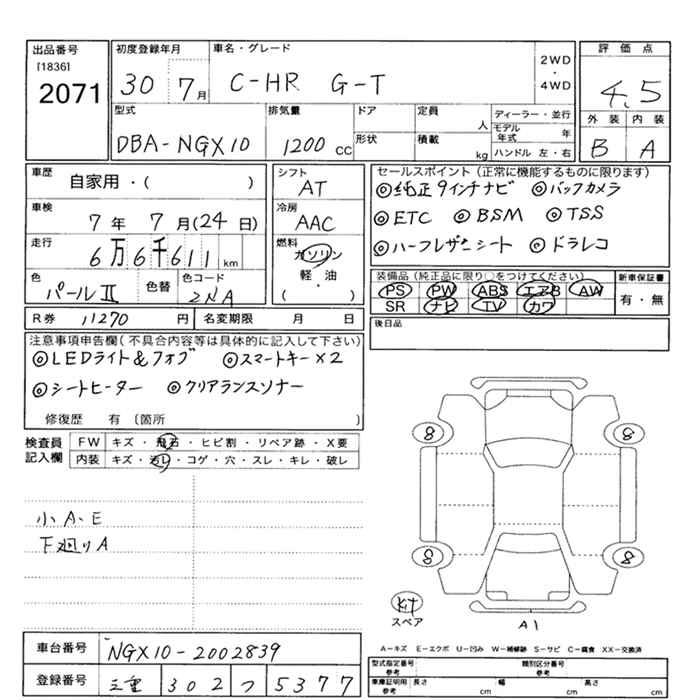 出品番号
[1836]
2071
初度登録年月
30 7月
車名・グレード
C-HR G-T
2WD
・
4WD
評価点
4.5
外装 内装
B A
型式
DBA-NGX10
排気量
1200 cc
ドア
形状
定員
人
積載
kg
ディーラー・並行
モデル年式 年
ハンドル 左・右
車歴
自家用・( )
車検
7年 7月(24日)
走行
6万6千611km
色
パールⅡ
色替
色コード
2NA
シフト
AT
冷房
AAC
燃料
ガソリン
軽・油
( )
セールスポイント(正常に機能するものに限ります)
◎純正9インチナビ ◎バックカメラ
◎ETC ◎BSM ◎TSS
◎ハーフレザーシート ◎ドラレコ
装備品(純正品に限り○をつけてください)
PS PW ABS エアB AW
SR ナビ TV カワ
新車保証書
有・無
R券 11270円 名変期限 月 日
後日品
注意事項申告欄(不具合内容等は具体的に記入して下さい)
◎LEDライト&フォグ ◎スマートキー×2
◎シートヒーター ◎クリアランスソナー
修復歴 有〔箇所 〕
検査員
記入欄
FW キズ・飛石・ヒビ割・リペア跡・X要
内装 キズ・汚レ・コゲ・穴・スレ・キレ・破レ
小A、E
下廻りA
8 8
8 8
Kit
スペア
A1
A-キズ E-エクボ U-凹み W-補修跡 S-サビ C-腐食 XX-交換済
車台番号
NGX10-2002839
登録番号
三重 302 つ 5377
型式指定番号
参考
類別区分番号
参考
車庫証明用
参考
長さ cm 幅 cm 高さ cm